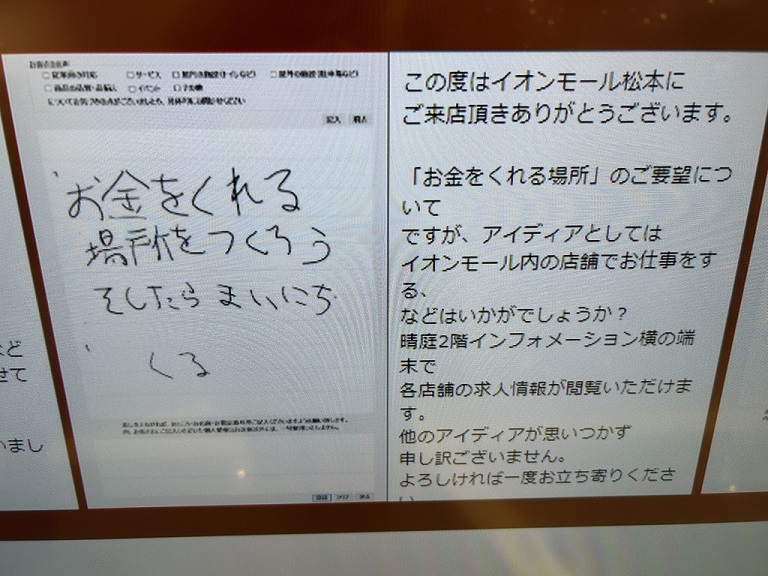 お客さまの声
□ 従業員の対応 □ サービス □ 館内の施設(トイレなど) □ 屋外の施設(駐車場など)
□ 商品の品質・品揃え □ イベント □ その他
記入 消去
お金をくれる
場所をつくろう
そしたら まいにち
くる
この度はイオンモール松本に
ご来店頂きありがとうございます。
「お金をくれる場所」のご要望につ
いて
ですが、アイディアとしては
イオンモール内の店舗でお仕事をす
る、
などはいかがでしょうか？
晴庭2階インフォメーション横の端
末で
各店舗の求人情報が閲覧いただけま
す。
他のアイディアが思いつかず
申し訳ございません。
よろしければ一度お立ち寄りくださ
い
など
せて
いまし